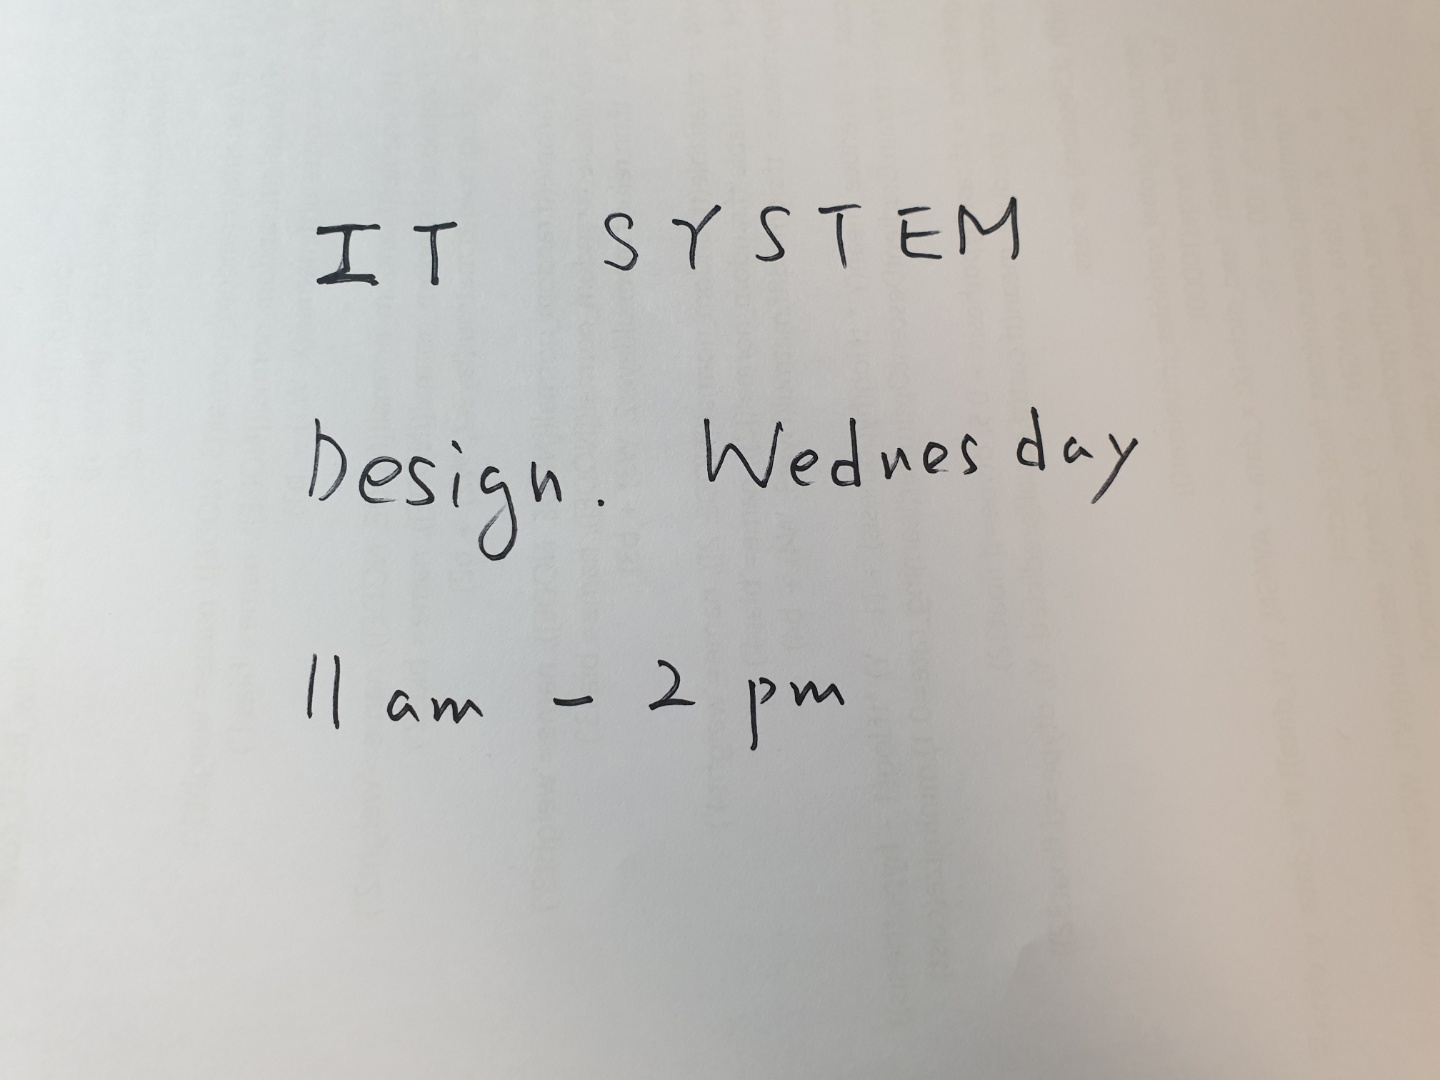 IT SYSTEM
Design. Wednesday
11 am - 2 pm